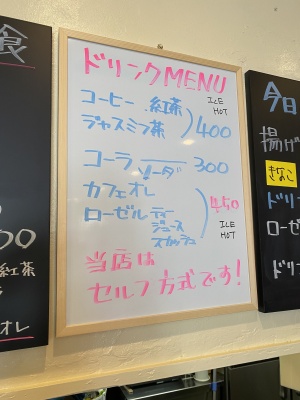 食
ドリンクMENU
コーヒー 紅茶 ICE
ジャスミン茶 HOT 400
コーラ ソーダ 300
カフェオレ
ローゼル ティー 450
ジュース ICE
スカッシュ HOT
当店は
セルフ方式です!
00
紅茶
オレ
今日
揚げ
きなこ
ドリ
ローゼ
ドリ